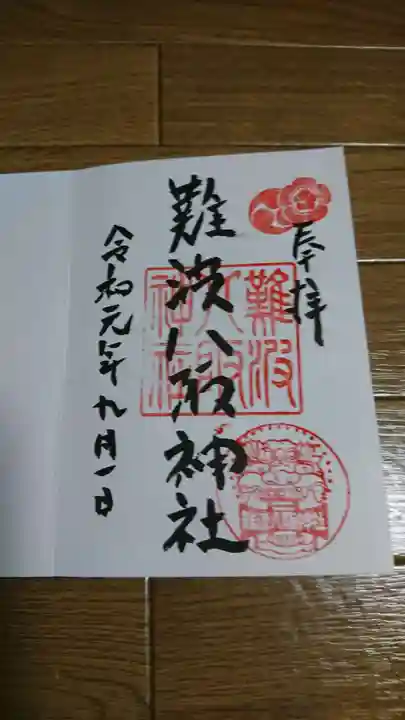 奉拝
難波八阪神社
難波
八阪
神社
令和元年九月一日